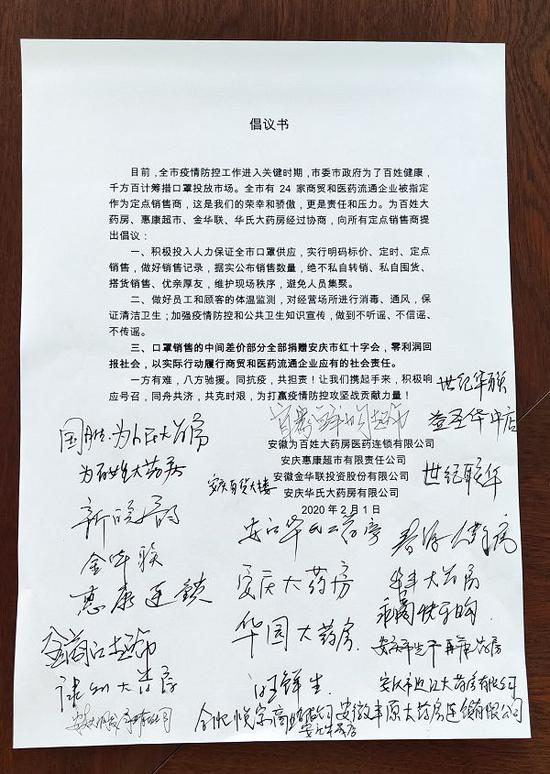 倡议书
目前，全市疫情防控工作进入关键时期，市委市政府为了百姓健康，
千方百计筹措口罩投放市场。全市有 24 家商贸和医药流通企业被指定
作为定点销售商，这是我们的荣幸和骄傲，更是责任和压力。为百姓大
药房、惠康超市、金华联、华氏大药房经过协商，向所有定点销售商提
出倡议：
一、积极投入人力保证全市口罩供应，实行明码标价、定时、定点
销售，做好销售记录，据实公布销售数量，绝不私自转销、私自囤货、
搭货销售、优亲厚友，维护现场秩序，避免人员集聚。
二、做好员工和顾客的体温监测，对经营场所进行消毒、通风，保
证清洁卫生；加强疫情防控和公共卫生知识宣传，做到不听谣、不信谣、
不传谣。
三、口罩销售的中间差价部分全部捐赠安庆市红十字会，零利润回
报社会，以实际行动履行商贸和医药流通企业应有的社会责任。
一方有难，八方驰援。同抗疫，共担责！让我们携起手来，积极响
应号召，同舟共济，共克时艰，为打赢疫情防控攻坚战贡献力量！
世纪华联
安徽为百姓大药房医药连锁有限公司
安庆惠康超市有限责任公司
安徽金华联投资股份有限公司
安庆华氏大药房有限公司
2020 年 2 月 1 日
安庆百货大楼
世纪联华
为百姓大药房
金华联
安庆大药房
惠康连锁
华国大药房
安徽丰原大药房连锁有限公司